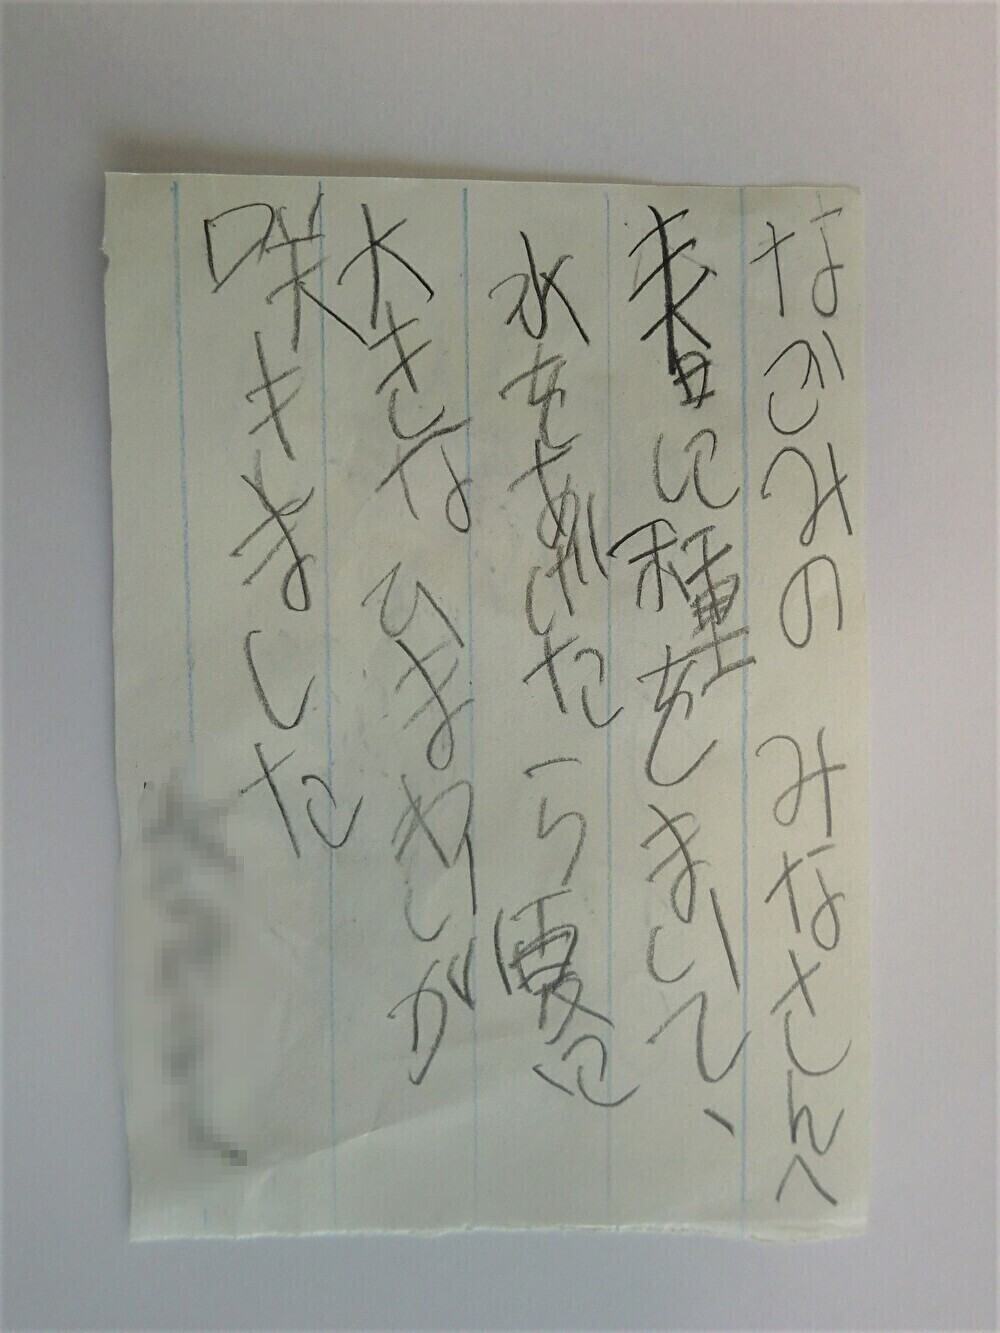 なごみの みなさんへ
春に種をまいて、
水をあげたら夏に
大きな ひまわりが
咲きました